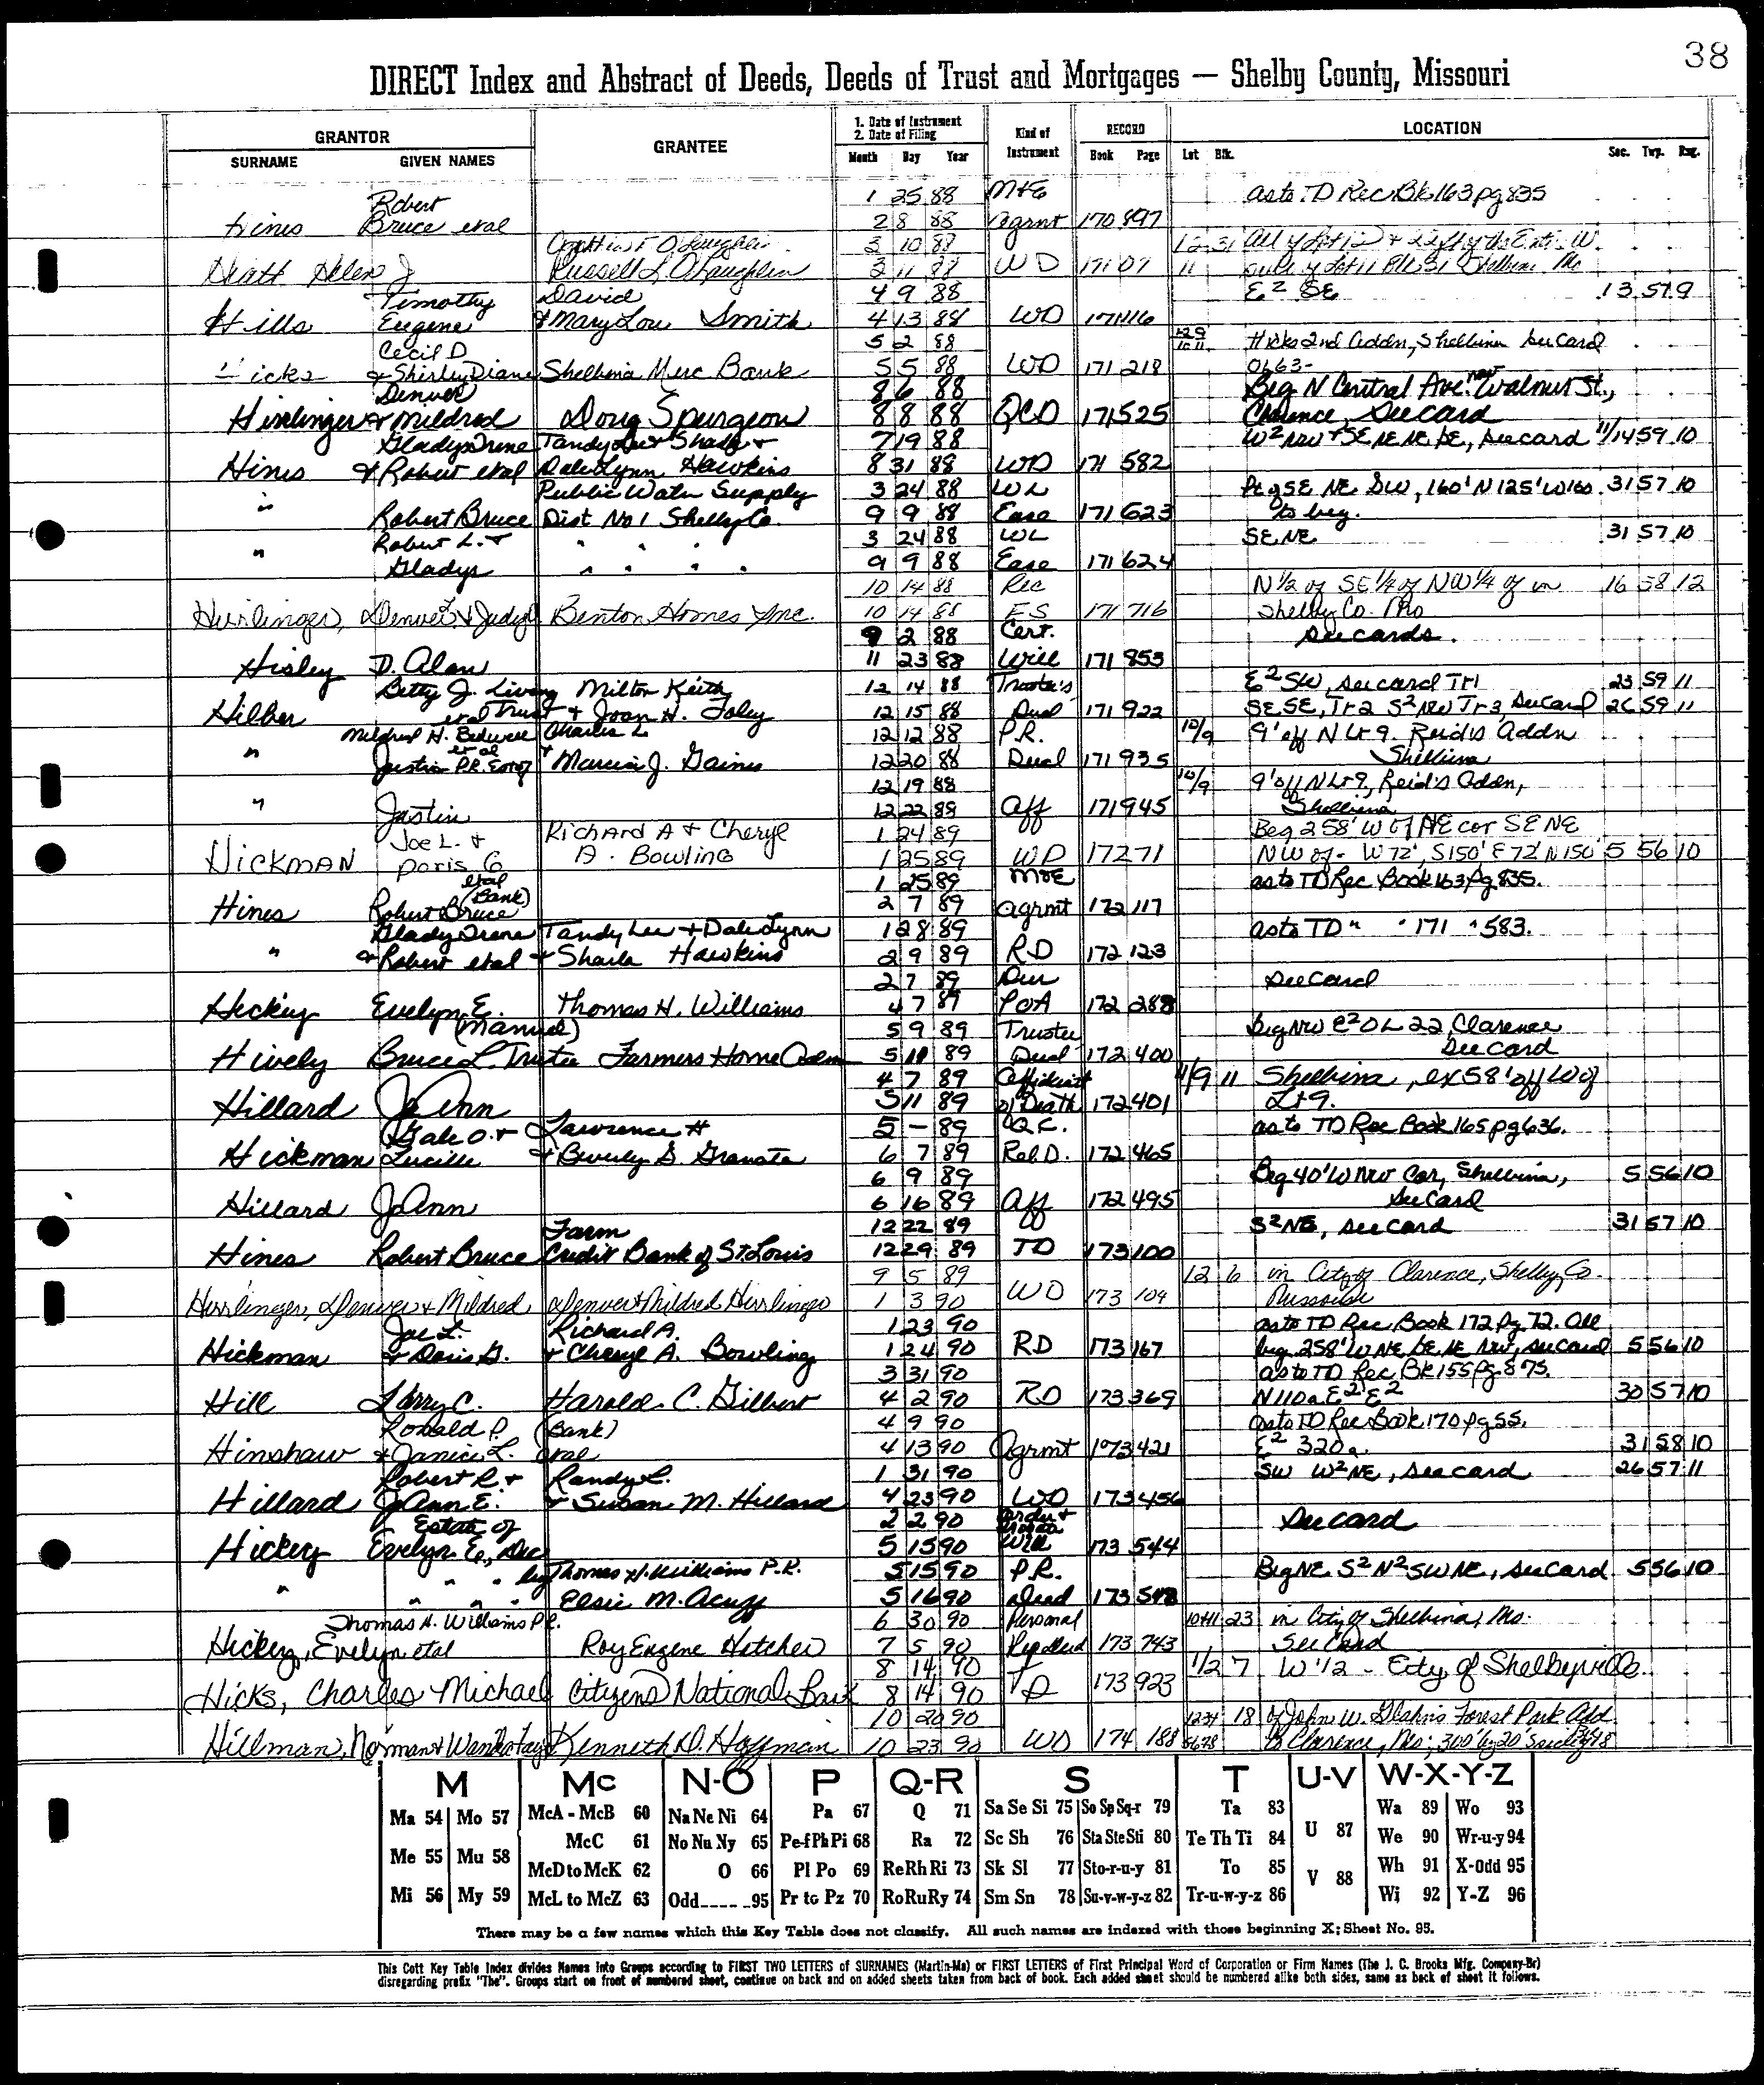 38
DIRECT Index and Abstract of Deeds, Deeds of Trust and Mortgages — Shelby County, Missouri
GRANTOR GRANTEE 1. Date of Instrument 2. Date of Filing Kind of Instrument RECORD LOCATION
SURNAME GIVEN NAMES Month Day Year Book Page Lot Blk. Sec. Twp. Rng.
Robert 1 25 88 as to TD Rec Bk 163 pg 835
Hines Bruce etal 2 8 88 Agrmt 170 897
O'Laughlin 3 10 88 12 31
Hiatt Helen J Russell L. O'Laughlin 3 11 88 WD 171 07 11
Timothy David 4 9 88 E² SE 13 57 9
Hills Eugene & Mary Lou Smith 4 13 88 WD 171 116
Cecil D. 5 2 88 Hicks 2nd Addn, Shelbina See Card
Hicks & Shirley Diane Shelbina Merc Bank 5 5 88 WD 171 218 0663-
Denver 8 6 88 Beg N Central Ave. Walnut St.,
Hirrlinger & Mildred Doug Spurgeon 8 8 88 QCD 171 525 Clarence, See Card
Gladys Irene Tandy Lee & Shaila + 7 19 88 W² NW + SE NE NE SE, See card 11/14 59 10
Hines & Robert etal Dale Lynn Hawkins 8 31 88 WD 171 582
Public Water Supply 3 24 88 WL Pt of SE NE SW, 160' N 125' W 160 31 57 10
" Robert Bruce Dist No 1 Shelby Co. 9 9 88 Ease 171 623 to beg.
Robert L. + 3 24 88 WL SE NE 31 57 10
" Gladys " " " " 9 9 88 Ease 171 624
10 14 88 Rec N 1/2 of SE 1/4 of NW 1/4 of in 16 58 12
Hirrlinger, Denver L & Judy Benton Homes Inc. 10 14 88 ES 171 716 Shelby Co. Mo
9 2 88 Cert. See cards.
Hisley D. Alan 11 23 88 Will 171 853
Betty J. Living Milton Keith 12 14 88 Trustee's E² SW, See card Tr 1 23 59 11
Hilber etal Trust & Joan H. Foley 12 15 88 Deed 171 922 SE SE, Tr 2 S² NW Tr 3, See Card 26 59 11
Mildred H. Bedwell Charles L 12 12 88 P.R. 10/9 9' off N Lt 9. Reid's Addn
" etal Justin P.R. Est of & Marcia J. Gaines 12 20 88 Deed 171 935 Shelbina
12 19 88 10/9 9' off N Lt 9, Reid's Addn,
" Justin 12 22 88 Aff 171 945 Shelbina
Joe L. + Richard A + Cheryl 1 24 89 Beg 258' W of NE cor SE NE
Hickman Doris G A. Bowling 1 25 89 WD 172 71 NW of - W 72', S150' E 72' N 150' 5 56 10
etal (Bank) 1 25 89 as to TD Rec Book 163 Pg 835.
Hines Robert Bruce 2 7 89 Agrmt 172 117
Gladys Irene Tandy Lee + Dale Lynn 1 28 89 as to TD " " 171 " 583.
" & Robert etal + Shaila Hawkins 2 9 89 RD 172 123
2 7 89 Dur See Card
Hickey Evelyn E. Thomas H. Williams 4 7 89 POA 172 288
(Manuel) 5 9 89 Trustee Beg NW E² OL 22, Clarence
Hively Bruce L. Trustee Farmers Home Adm 5 11 89 Deed 172 400 See Card
4 7 89 Affidavit 4/9 11 Shelbina, ex 58' off W of
Hillard JoAnn 5 11 89 of Death 172 401 Lt 9.
Gale O. + Lawrence H 5 - 89 Q.C. as to TD Rec Book 165 pg 636.
Hickman Lucille & Beverly S. Granata 6 7 89 Rel D. 172 465
6 9 89 Beg 40' W NW Cor, Shelbina, 5 56 10
Hillard JoAnn 6 16 89 Aff 172 495 See Card
Farm 12 22 89 S² NE, See card 31 57 10
Hines Robert Bruce Credit Bank of St Louis 12 29 89 TD 173 100
9 5 89 12 6 in City of Clarence, Shelby Co.
Hirrlinger, Denver & Mildred Denver & Mildred Hirrlinger 1 3 90 WD 173 104 Missouri
Joe L. Richard A. 1 23 90 as to TD Rec Book 172 Pg 72. All
Hickman & Doris G. & Cheryl A. Bowling 1 24 90 RD 173 167 beg 258' W NE SE NE NW, See card 5 56 10
3 31 90 as to TD Rec Bk 155 pg 873.
Hill Larry C. Harold C. Gilbert 4 2 90 RD 173 369 N 110a E² E² 30 57 10
Ronald P. (Bank) 4 9 90 as to TD Rec Book 170 pg 55.
Hinshaw & Janice L. etal 4 13 90 Agrmt 173 421 E² 320a. 31 58 10
Robert R. + Randy L. 1 31 90 SW W² NE, See card 26 57 11
Hillard JoAnn E. & Susan M. Hillard 4 23 90 WD 173 456
Estate of 2 2 90 Order + See card
Hickey Evelyn E., Dec 5 15 90 Will 173 544
" " " by Thomas H. Williams P.R. 5 15 90 P.R. Beg NE S² N² SW NE, See Card 5 56 10
" " " Elsie M. Acuff 5 16 90 Deed 173 548
Thomas H. Williams P.R. 6 30 90 Personal 10+11 23 in City of Shelbina, Mo.
Hickey, Evelyn etal Roy Eugene Hatcher 7 5 90 Rep Deed 173 743 See Card
8 14 90 1/2 7 W 1/2 - City of Shelbyville
Hicks, Charles Michael Citizens National Bank 8 14 90 TD 173 923
10 20 90 1234 18 of John W. Glahn's Forest Park Add
Hillman, Norman & Wanda Fay Kenneth D. Hoffman 10 23 90 WD 174 188 5678 to Clarence, Mo; 300' by 20'
M Mc N-O P Q-R S T U-V W-X-Y-Z
Ma 54 Mo 57 McA - McB 60 Na Ne Ni 64 Pa 67 Q 71 Sa Se Si 75 So Sp Sq-r 79 Ta 83 U 87 Wa 89 Wo 93
Me 55 Mu 58 McC 61 No Nu Ny 65 Pe-f Ph Pi 68 Ra 72 Sc Sh 76 Sta Ste Sti 80 Te Th Ti 84 We 90 Wr-u-y 94
McD to McK 62 O 66 Pl Po 69 Re Rh Ri 73 Sk Sl 77 Sto-r-u-y 81 To 85 V 88 Wh 91 X-Odd 95
Mi 56 My 59 McL to McZ 63 Odd-----95 Pr to Pz 70 Ro Ru Ry 74 Sm Sn 78 Su-v-w-y-z 82 Tr-u-w-y-z 86 Wi 92 Y-Z 96
There may be a few names which this Key Table does not classify. All such names are indexed with those beginning X; Sheet No. 95.
This Cott Key Table Index divides Names into Groups according to FIRST TWO LETTERS of SURNAMES (Martin-Ma) or FIRST LETTERS of First Principal Word of Corporation or Firm Names (The J. C. Brooks Mfg. Company-Br)
disregarding prefix "The". Groups start on front of numbered sheet, continue on back and on added sheets taken from back of book. Each added sheet should be numbered alike both sides, same as back of sheet it follows.